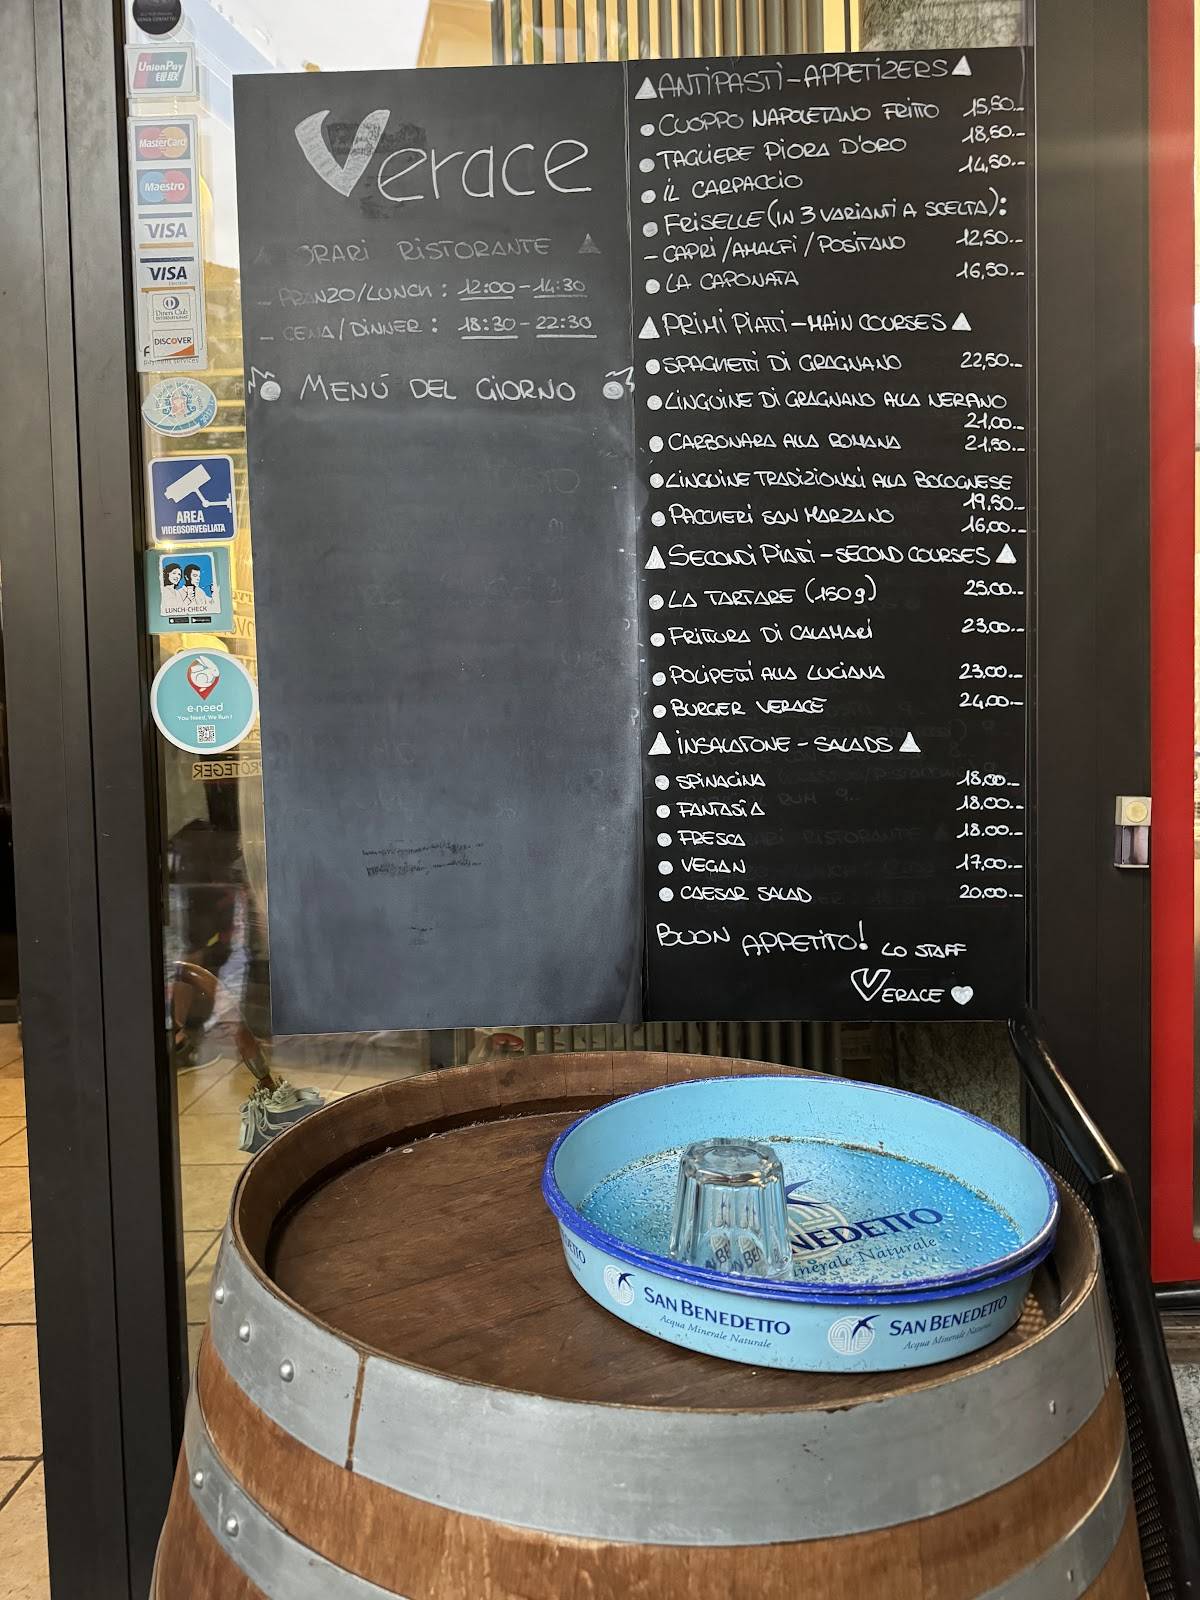 UnionPay
银联
MasterCard
Maestro
VISA
VISA
Electron
Diners Club
INTERNATIONAL
DISCOVER
payment services
AREA
VIDEOSORVEGLIATA
LUNCH-CHECK
e-need
You Need, We Run !
PROTEGER
Verace
ORARI RISTORANTE
- PRANZO/LUNCH : 12:00 - 14:30
- CENA/DINNER : 18:30 - 22:30
MENÚ DEL GIORNO
ANTIPASTI - APPETIZERS
CUOPPO NAPOLETANO FRITTO 15,50.-
TAGLIERE PIORA D'ORO 18,50.-
IL CARPACCIO 14,50.-
FRISELLE (IN 3 VARIANTI A SCELTA):
- CAPRI / AMALFI / POSITANO 12,50.-
LA CAPONATA 16,50.-
PRIMI PIATTI - MAIN COURSES
SPAGHETTI DI GRAGNANO 22,50.-
LINGUINE DI GRAGNANO ALLA NERANO
21,00.-
CARBONARA ALLA ROMANA 21,50.-
LINGUINE TRADIZIONALI ALLA BOLOGNESE
19,50.-
PACCHERI SAN MARZANO 16,00.-
SECONDI PIATTI - SECOND COURSES
LA TARTARE (150g) 25,00.-
FRITTURA DI CALAMARI 23,00.-
POLIPETTI ALLA LUCIANA 23,00.-
BURGER VERACE 24,00.-
INSALATONE - SALADS
SPINACINA 18,00.-
FANTASIA 18,00.-
FRESCA 18,00.-
VEGAN 17,00.-
CAESAR SALAD 20,00.-
BUON APPETITO! LO STAFF
VERACE
NEDETTO
Minerale Naturale
SAN BENEDETTO
Acqua Minerale Naturale
SAN BENEDETTO
Acqua Minerale Naturale